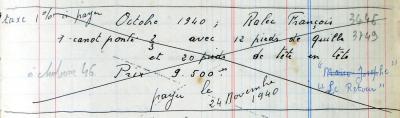 taxe 1% à payer Octobre 1940 ; Rolec François 3448
1 canot ponté avec 12 pieds de quille 3749
et 20 pieds de tête en tête
octobre 46 Prix 9.500 "Marie-Josèphe"
payer le "Le Retour"
24 Novembre 1940